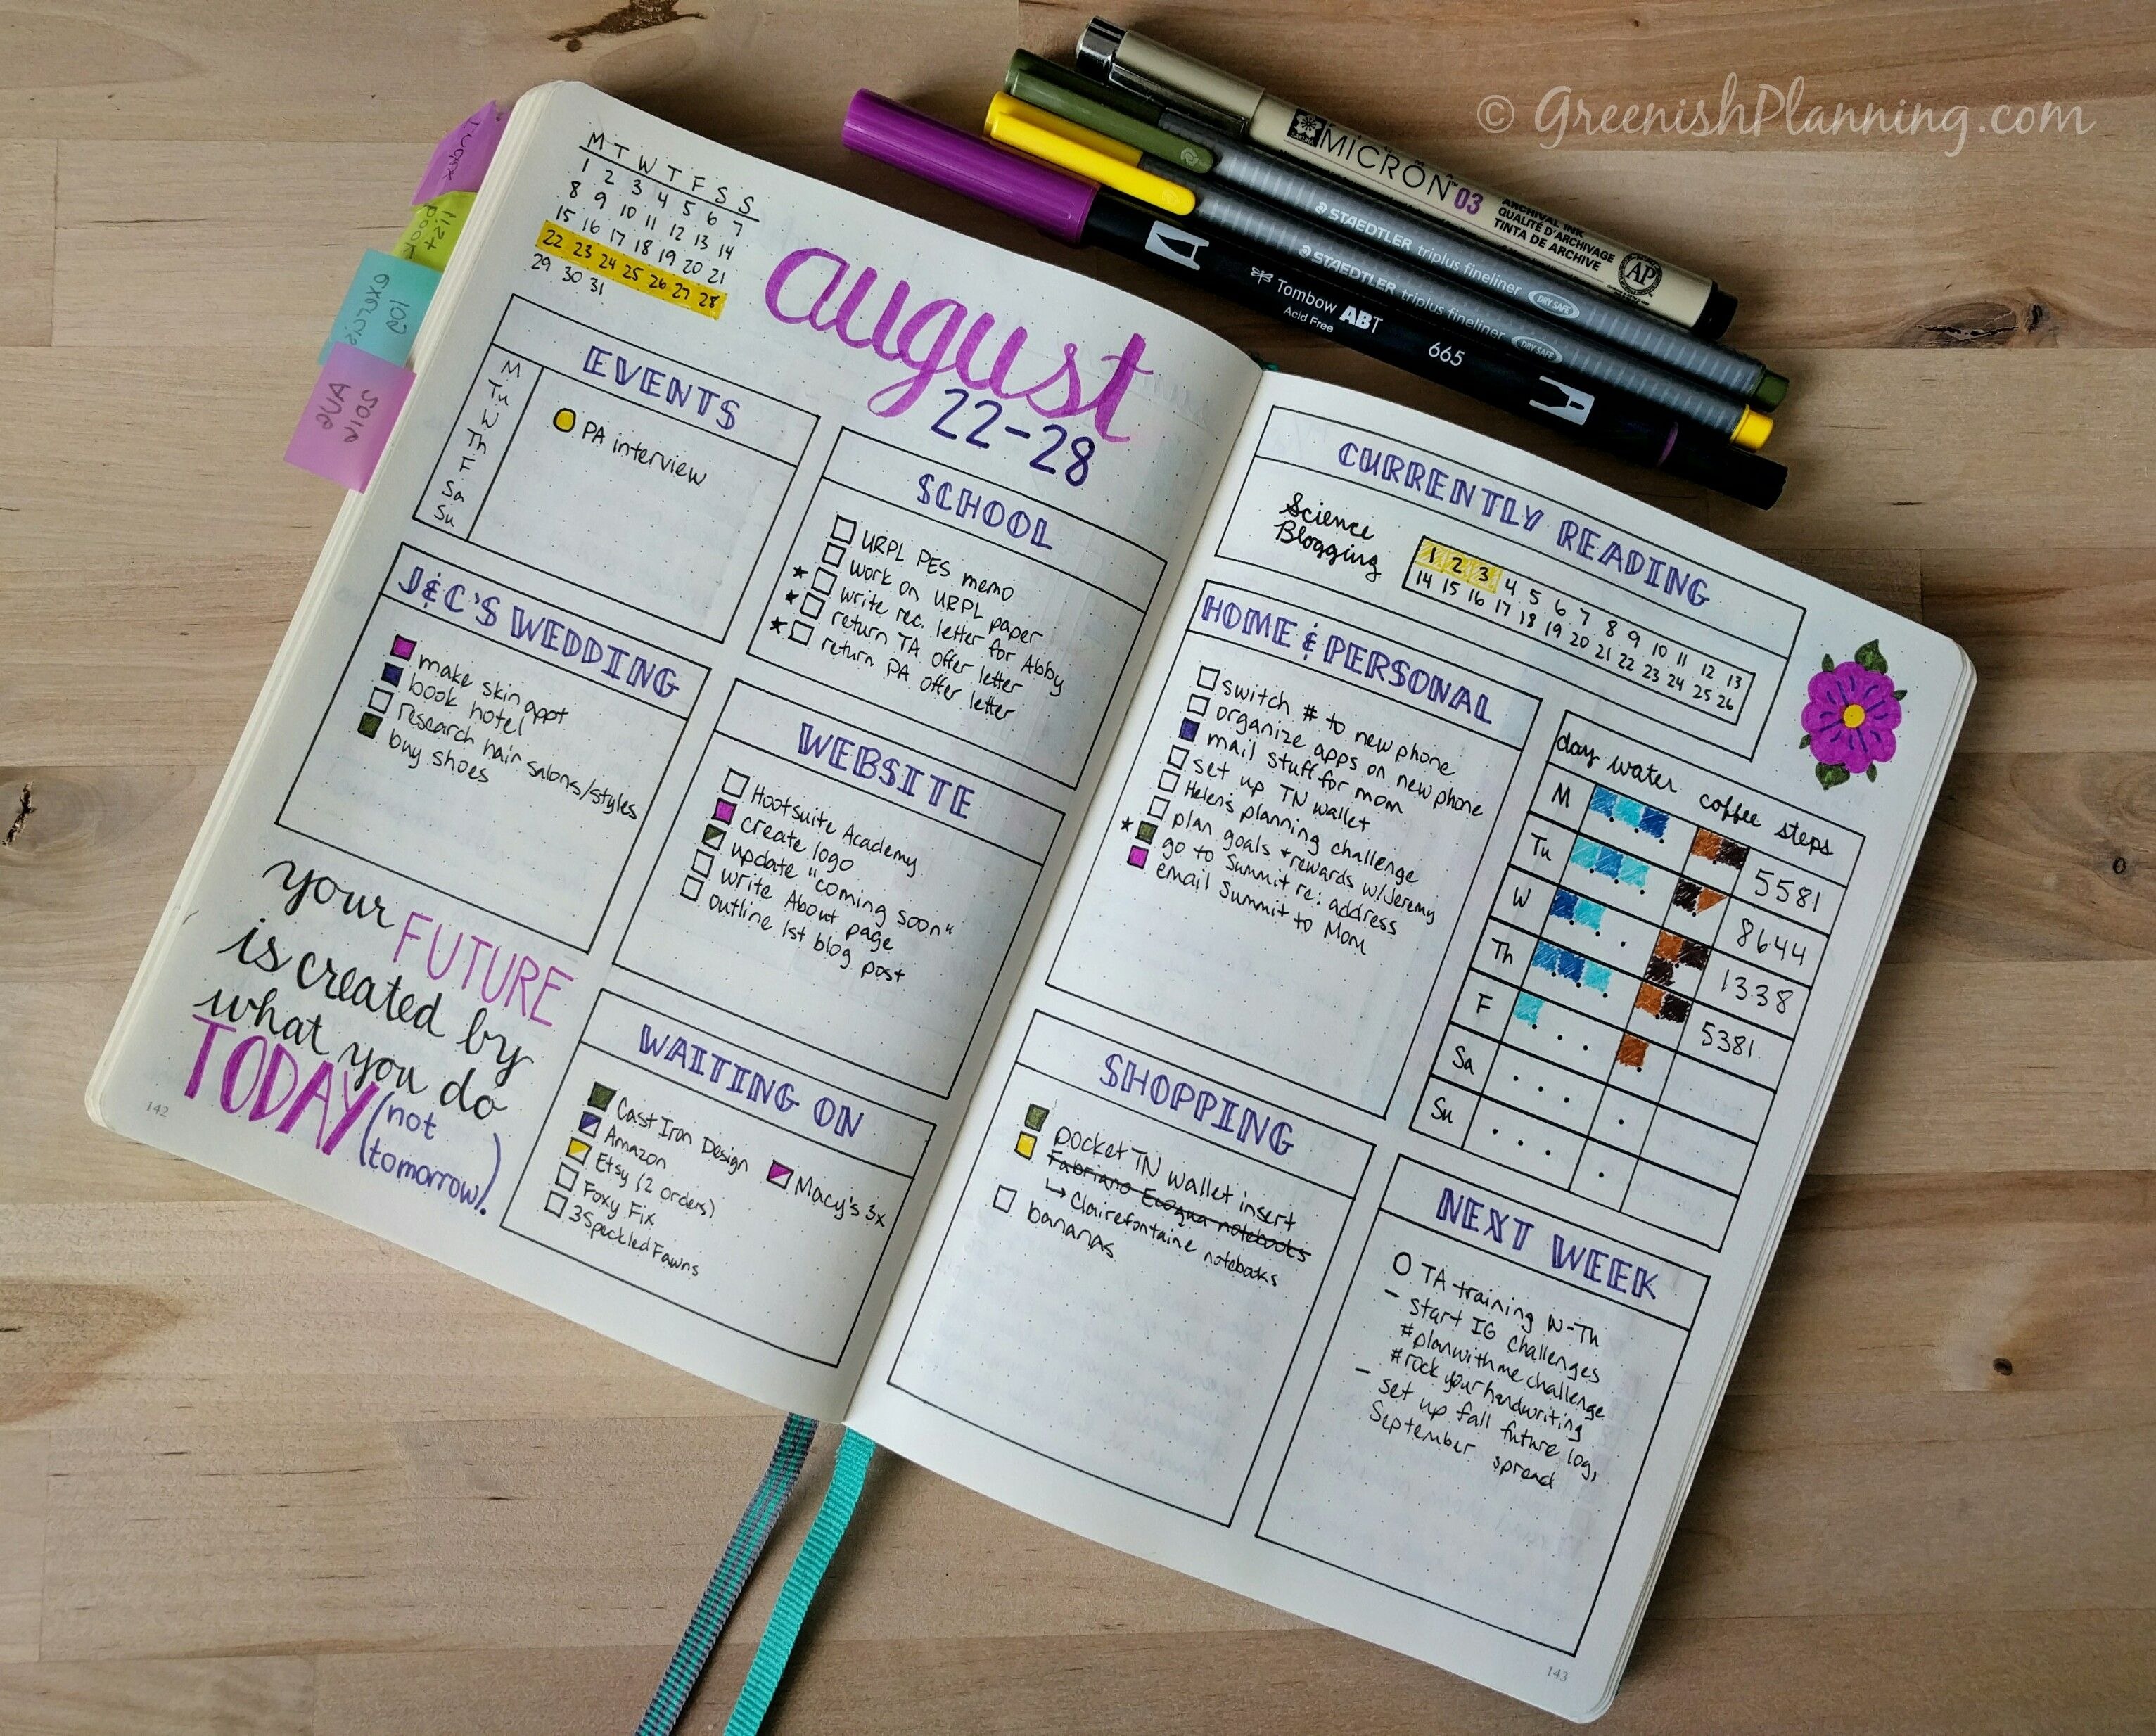 © GreenishPlanning.com
MICRON 03
ARCHIVAL INK
QUALITÉ D'ARCHIVAGE
TINTA DE ARCHIVE
AP
STAEDTLER triplus fineliner DRY SAFE
STAEDTLER triplus fineliner DRY SAFE
Tombow ABT
Acid Free
665
M T W T F S S
1 2 3 4 5 6 7
8 9 10 11 12 13 14
15 16 17 18 19 20 21
22 23 24 25 26 27 28
29 30 31
august
22-28
EVENTS
M
Tu
W
Th
F
Sa
Su
PA interview
SCHOOL
URPL PES memo
work on URPL paper
★ write rec. letter for Abby
★ return TA offer letter
★ return PA offer letter
J&C'S WEDDING
make skin appt
book hotel
research hair salons/styles
buy shoes
WEBSITE
Hootsuite Academy
create logo
update "coming soon"
write About page
outline 1st blog post
your FUTURE
is created by
what you do
TODAY (not
tomorrow).
142
WAITING ON
Cast Iron Design
Amazon
Etsy (2 orders)
Foxy Fix
3 Speckled Fawns
Macy's 3x
CURRENTLY READING
Science
Blogging
1 2 3 4 5 6 7 8 9 10 11 12 13
14 15 16 17 18 19 20 21 22 23 24 25 26
HOME & PERSONAL
switch # to new phone
organize apps on new phone
mail stuff for mom
set up TN wallet
Helen's planning challenge
plan goals + rewards w/Jeremy
★ go to Summit re: address
email Summit to Mom
day water coffee steps
M 5581
Tu 8644
W 1338
Th 5381
F
Sa
Su
SHOPPING
pocket TN wallet insert
Fabriano Ecoqua notebooks
↳ Clairefontaine notebooks
bananas
NEXT WEEK
O TA training W-Th
- start IG challenges
#planwithmechallenge
#rockyourhandwriting
- set up fall future log,
September spread
143